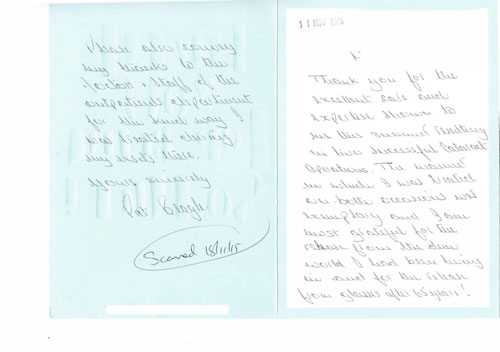 11 NOV 2015
Thank you for the
excellent care and
expertise shown to
me this summer resulting
in two successful Cataract
Operations. The manner
in which I was treated
on both occasions was
exemplary and I am
most grateful for the
release from the dim
world I had been living
in and for the release
from glasses after 65 years!
Please also convey
my thanks to the
doctors & staff of the
outpatients department
for the kind way I
was treated during
my visits there.
Yours sincerely
Pat
Scanned 18/11/15